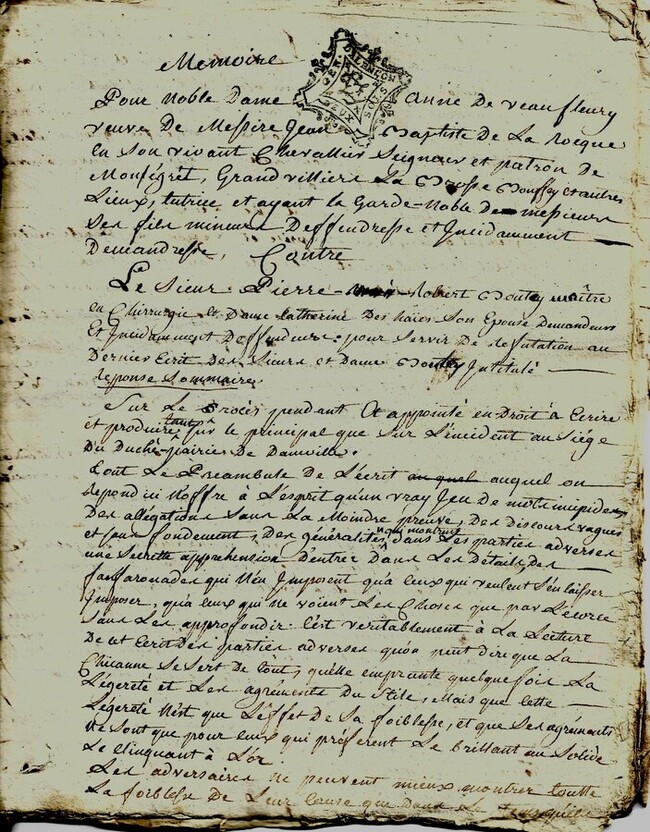 Memoire
GEN. D'ALENÇON
DEUX SOLS
Pour Noble Dame Anne De Veaufleury
veuve De Messire Jean Baptiste De La Rocque
En Son vivant Chevallier Seigneur et patron de
Monfegret, Grandvilliers La Mousse Mouffey et autres
Lieux, tutrice et ayant la Garde-Noble De messieurs
Ses fils mineurs Deffendresse et Incidamment
Demandresse, Contre
Le Sieur Pierre Robert maître
en Chirurgie Et Dame Catherine Des haies Son Epouse Demandeurs
Et Incidamment Deffendeurs: pour Servir De refutation au
Dernier Ecrit Des Sieurs et Dame Intitulé
reponse Sommaire
Sur Le Procès pendant Et appointé en Droit à Ecrire
et produire tant sur le principal que Sur L'incident au Siége
Du Duché-pairie De Damville.
tout Le Preambule De L'écrit au quel auquel on
repond ici N'offre à L'esprit qu'un vray Jeu De mots insipides
Des allégations Sans La Moindre preuve, Des Discours vagues
et sans fondement, Des généralités, qui montrent dans Les parties adverses
une Secrette apprehension D'entrer Dans Les Détails, Des
fanfaronades qui N'en Imposent qu'a Ceux qui veulent S'en laisser
Imposer, qu'à Ceux qui ne voïent Les Choses que par L'écorce
Sans Les approfondir. C'est veritablement à La Lecture
De Cet Ecrit Des parties adverses qu'on peut Dire que La
Chicanne Se Sert De tout, qu'elle emprunte quelque fois La
Légereté et Les agréments Du Stile, Mais que Cette
Légereté N'est que L'effet De Sa foiblesse, et que Ses agréments
Ne Sont que pour Ceux qui préferent Le brillant au Solide
Le Clinquant à L'or.
Les adversaires ne peuvent mieux montrer toutte
La foiblesse De Leur Cause que Dans Le